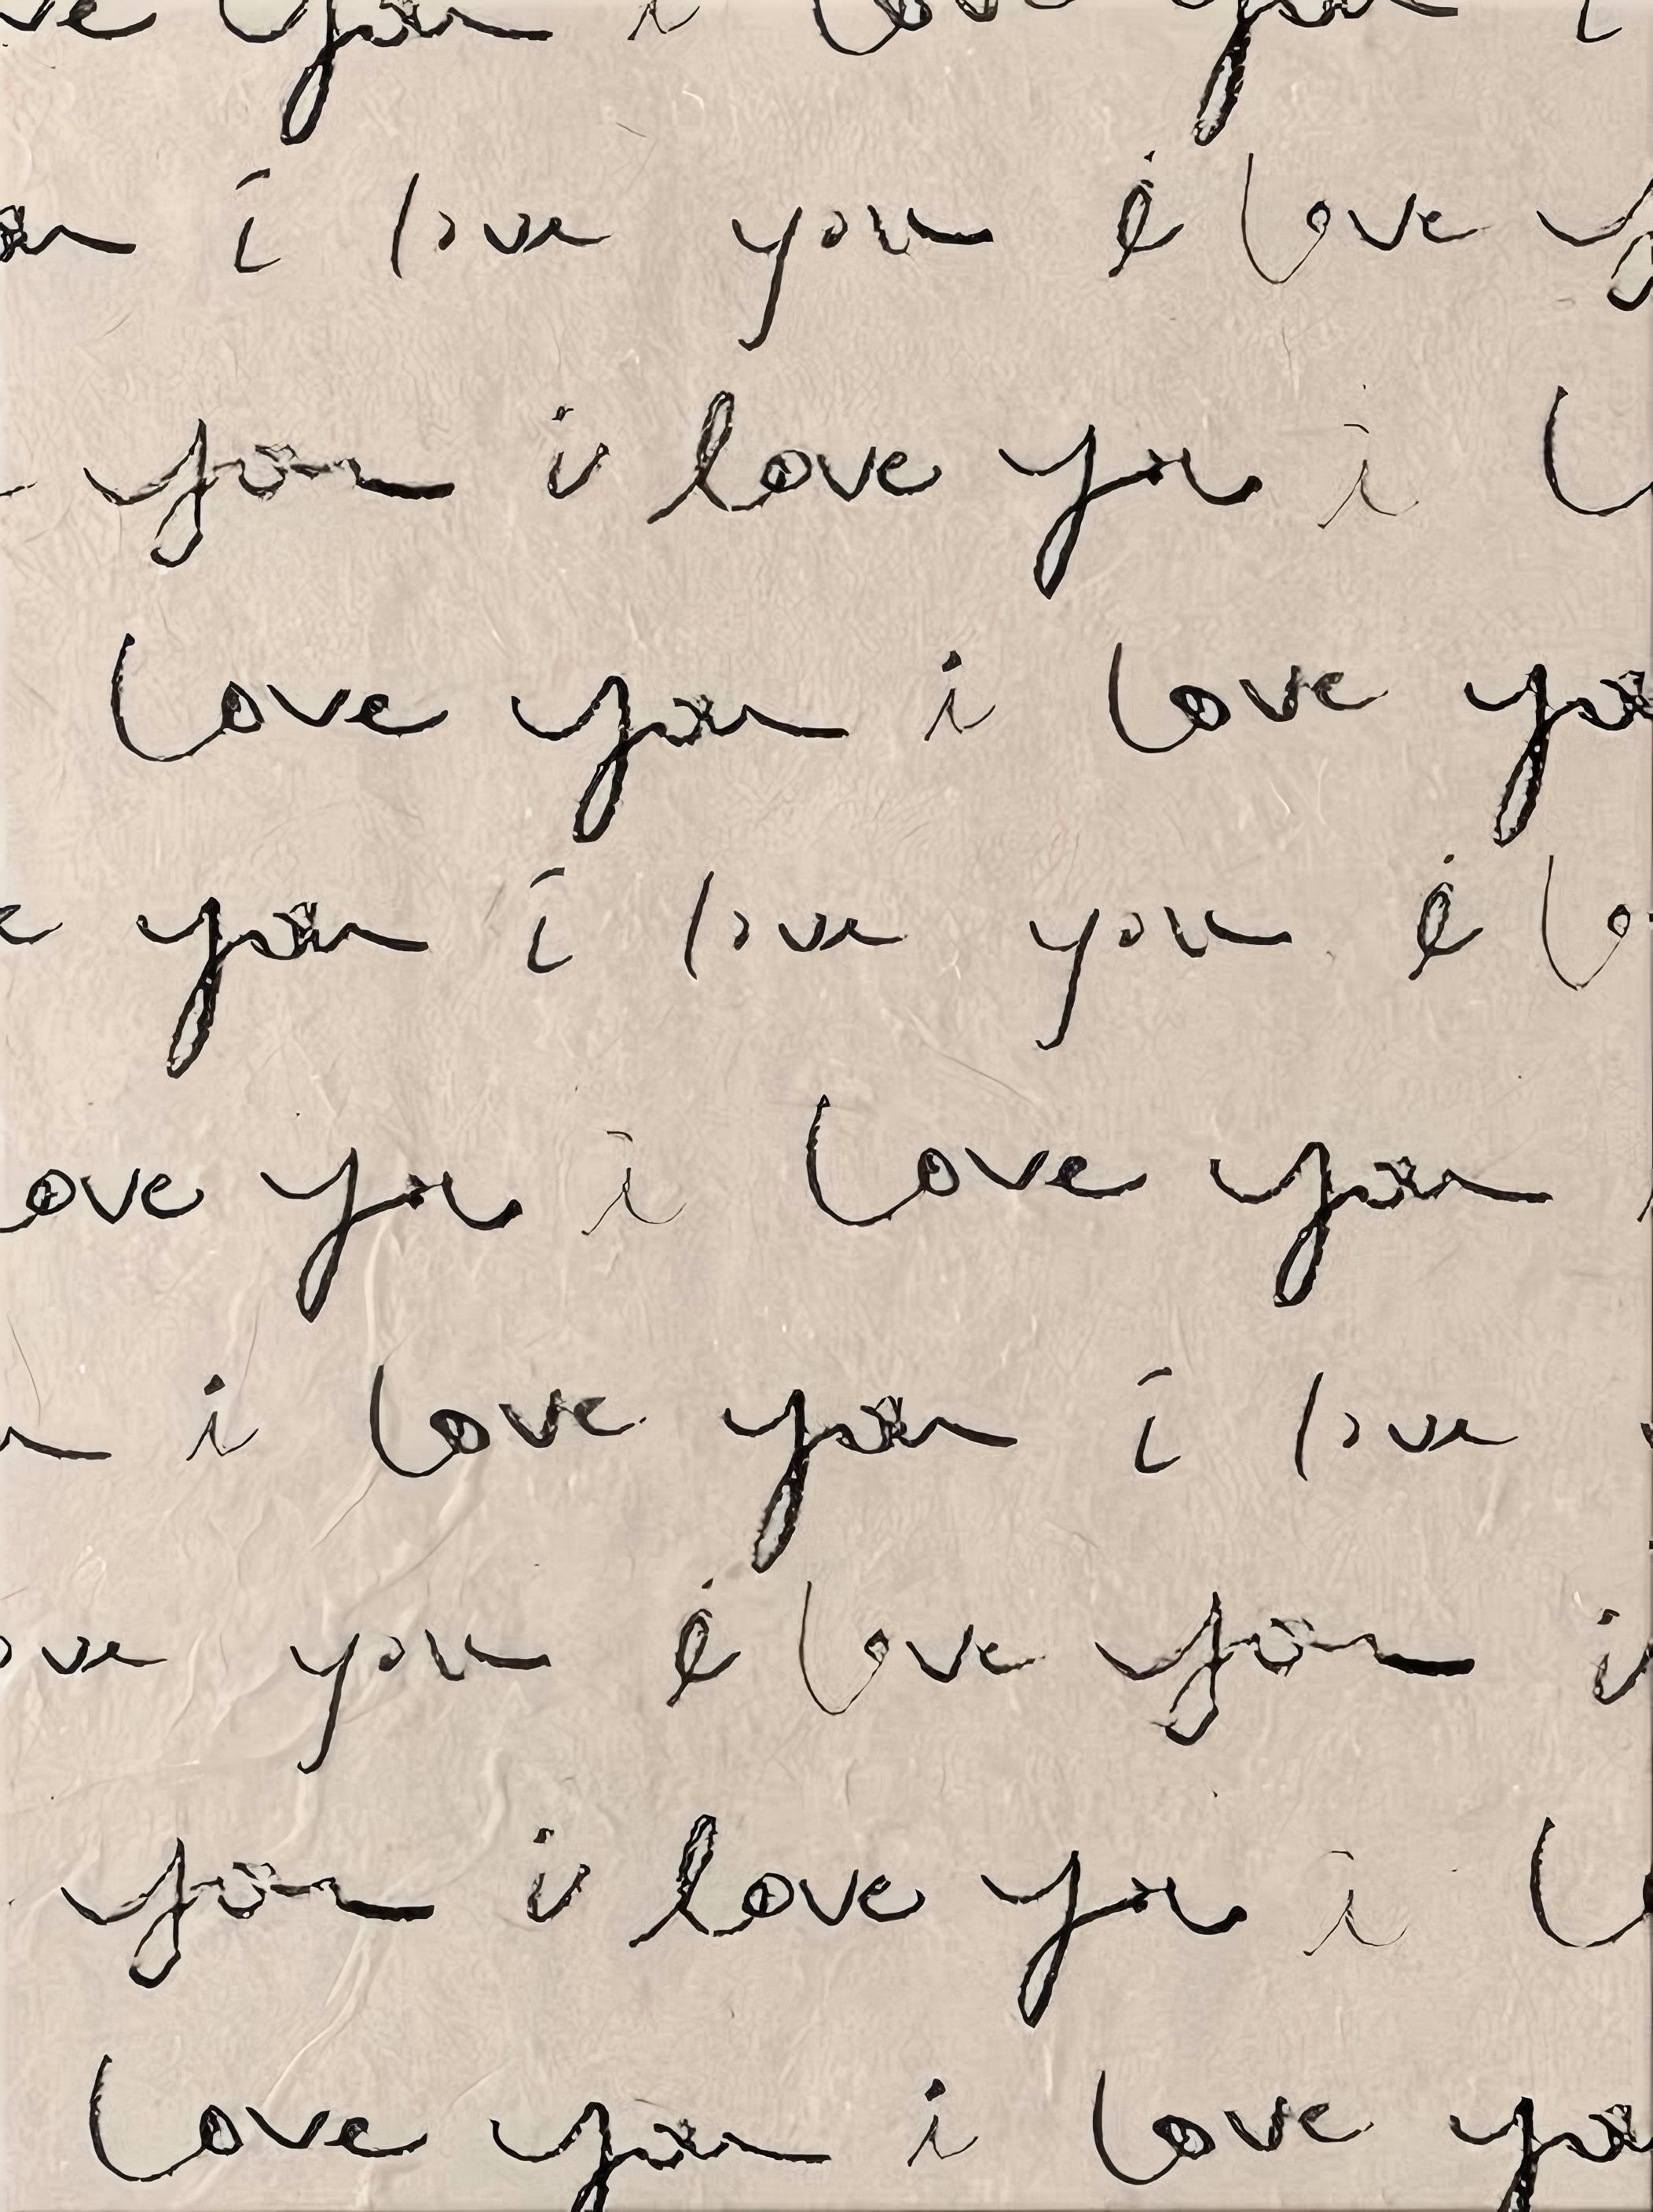 ve you i love you i
ou i love you i love y
you i love you i l
love you i love yo
e you i love you i lo
ove you i love you
u i love you i love
ove you i love you i
you i love you i l
love you i love yo